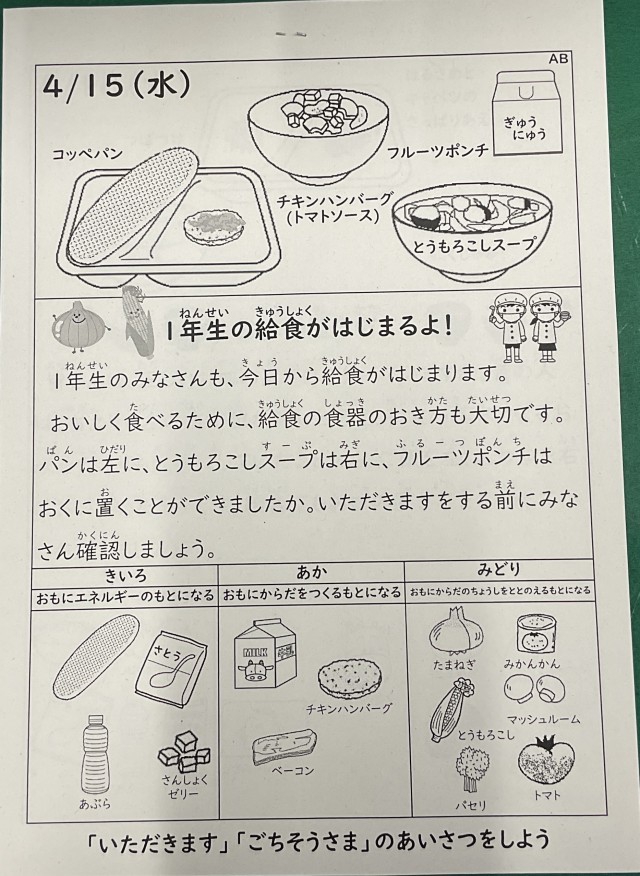 AB
4/15(水)
コッペパン
ぎゅう
にゅう
フルーツポンチ
チキンハンバーグ
(トマトソース)
とうもろこしスープ
ねんせい きゅうしょく
1年生の給食がはじまるよ!
ねんせい きょう きゅうしょく
1年生のみなさんも、今日から給食がはじまります。
た きゅうしょく しょっき かた たいせつ
おいしく食べるために、給食の食器のおき方も大切です。
ぱん ひだり すーぷ みぎ ふるーつぽんち
パンは左に、とうもろこしスープは右に、フルーツポンチは
お まえ
おくに置くことができましたか。いただきますをする前にみな
かくにん
さん確認しましょう。
きいろ
おもにエネルギーのもとになる
さとう
あぶら
さんしょく
ゼリー
あか
おもにからだをつくるもとになる
MILK
チキンハンバーグ
ベーコン
みどり
おもにからだのちょうしをととのえるもとになる
たまねぎ
みかんかん
とうもろこし
マッシュルーム
パセリ
トマト
「いただきます」「ごちそうさま」のあいさつをしよう